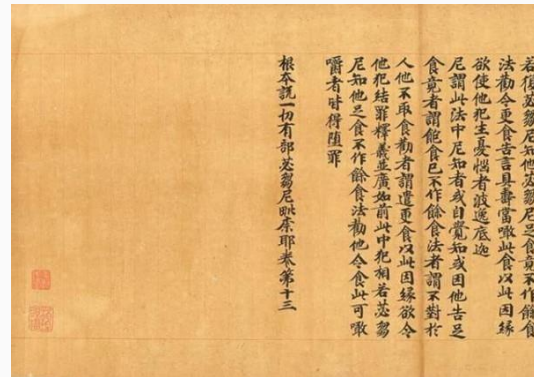 若復苾芻尼知他苾芻尼足食竟不作餘食
法勸令更食告言具壽當噉此食以此因緣
欲使他犯生憂惱者波逸底迦
尼謂此法中尼知者或自覺知或因他告足
食竟者謂飽食已不作餘食法者謂不對於
人他不取食勸者謂遣更食以此因緣欲令
他犯結罪釋義並廣如前此中犯相若苾芻
尼知他足食不作餘食法勸他令食此可噉
嚼者皆得墮罪
根本說一切有部苾芻尼毗奈耶卷第十三